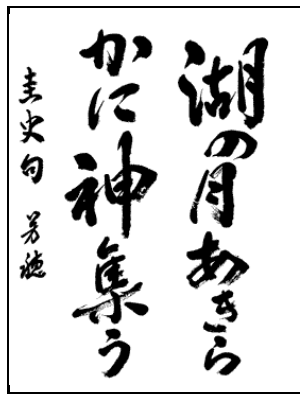 湖の月あきら
かに神集う
圭史句 芳穂